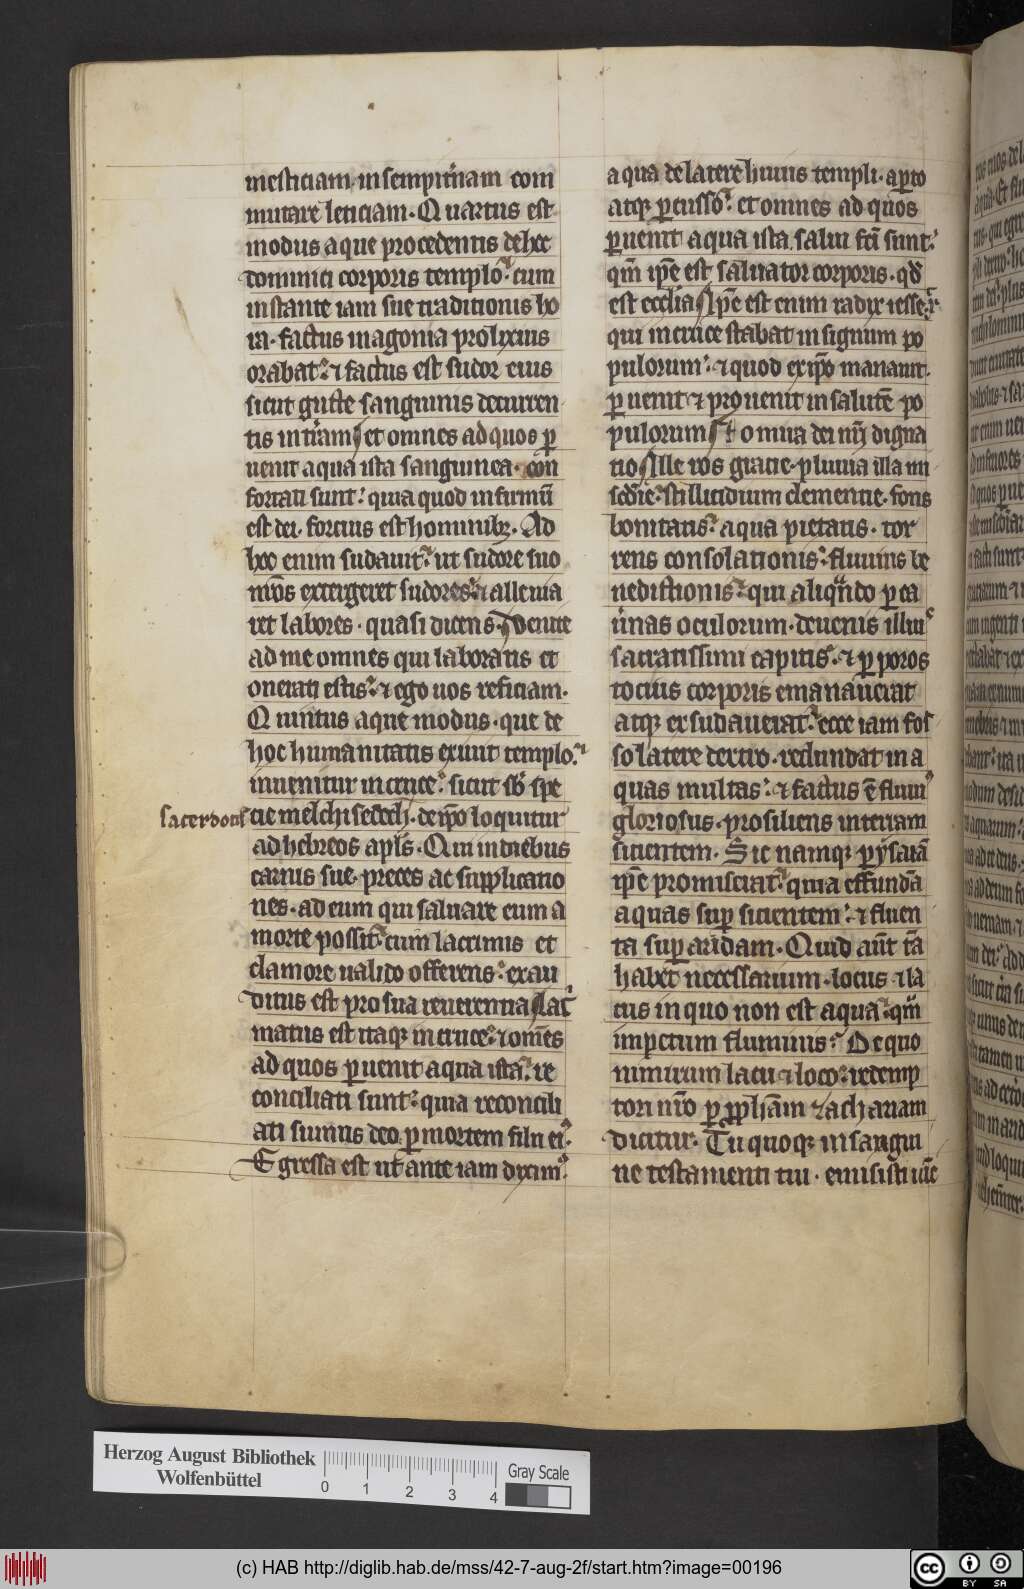 mesticiam in sempit̉nam com
mutare leticiam. Quartus est
modus aque procedentis de hoc
dominici corporis templo. cum
instante iam sue traditionis ho
ra. factus in agonia prolixius
orabat. ⁊ factus est sudor eius
sicut gutte sanguinis decurren
tis in tr̄am et omnes ad quos ꝑ
uenit aqua ista sanguinea. con
fortati sunt. quia quod infirmū
est dei. fortius est hominibꝫ. Ad
hoc enim sudauit. ut sudore suo
nr̄os extergeret sudores. ⁊ alleuia
ret labores. quasi dicens. Venite
ad me omnes qui laboratis et
onerati estis. ⁊ ego uos reficiam.
Quintus aque modus. que de
hoc humanitatis exiuit templo.
inuenitur in cruce. sicut sb̄ spe
sacerdotis cie melchisedech. de ip̄o loquitur
ad hebreos apl̄s. Qui in diebus
carnis sue. preces ac supplicatio
nes. ad eum qui saluare eum a
morte possit. cum lacrimis et
clamore ualido offerens. exau
ditus est pro sua reuerentia Lac̉
matus est itaqꝫ in cruce. ⁊ om̄es
ad quos ꝑuenit aqua ista. re
conciliati sunt. quia reconcili
ati sumus deo ꝑ mortem filii ei᷒.
Egressa est ut ante iam dixim᷒.
aqua de latere huius templi. aꝑto
atqꝫ ꝑcusso. et omnes ad quos
ꝑuenit aqua ista. salui fc̄i sunt.
qm̄ ip̄e est saluator corporis. qd̄
est ecclīa Ip̄e est enim radix iesse.
qui in cruce stabat in signum po
pulorum. ⁊ quod ex ip̄o manauit.
ꝑuenit ⁊ prouenit in salutē po
pulorum O mira dei nr̄i digna
tio Ille ros gratie. pluuia illa mi
sc̄d̄ie. stillicidium clementie. fons
bonitatis. aqua pietatis. tor
rens consolationis. fluuius be
nedictionis. qui aliqn̄do ꝑ ca
u̓nas oculorum. de uenis illiu᷒
sacratissimi capitis. ⁊ ꝑ poros
tocius corporis emanauerat
atqꝫ exsudauerat. ecce iam fos
so latere dextro. redundat in a
quas multas. ⁊ factus ē fluui᷒
gloriosus. prosiliens in terram
sicientem. Sic namqꝫ ꝑ ysaiā
ip̄e promiserat. quia effundā
aquas suꝑ sicientem. ⁊ fluen
ta suꝑ aridam. Quid aūt tā
habet necessarium. locus ⁊ la
cus in quo non est aqua. qm̄
impetum fluminis. De quo
nimirum lacu ⁊ loco. redemp
tori nr̄o ꝑ ꝓph̄am zachariam
dicitur. Tu quoqꝫ in sangui
ne testamenti tui. emisisti uīc